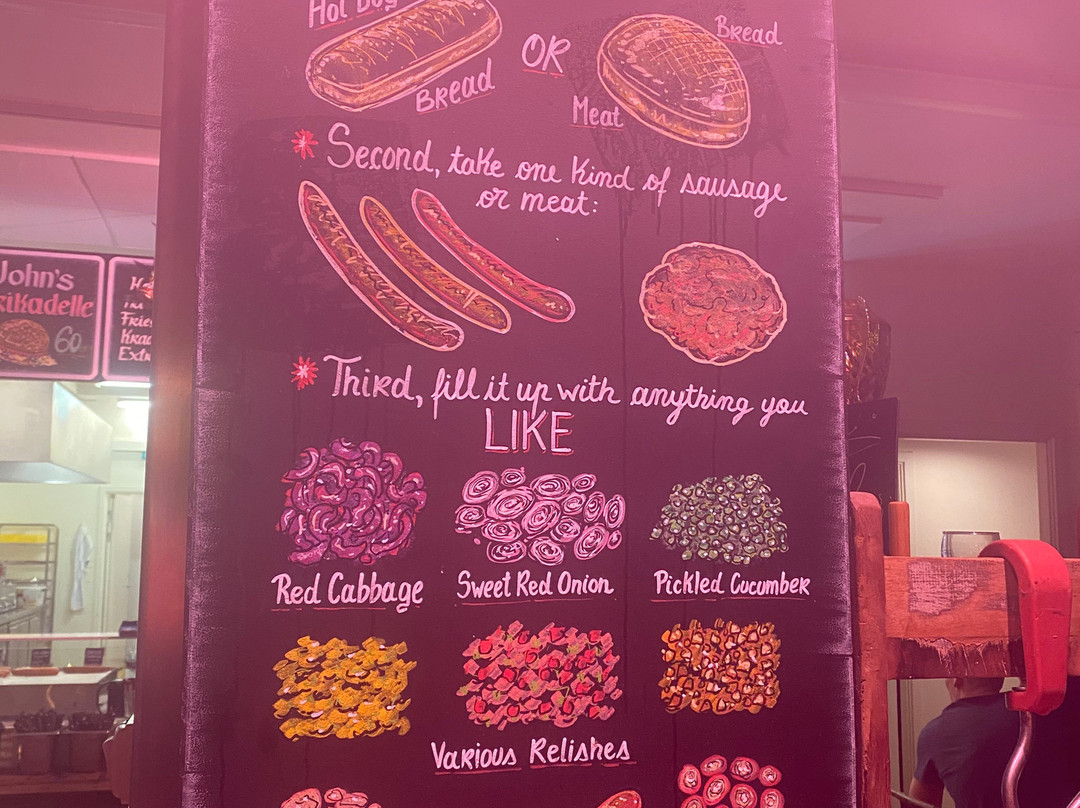 Hot Dog
Bread
OR
Bread
Meat
* Second, take one kind of sausage
or meat:
* Third, fill it up with anything you
LIKE
Red Cabbage
Sweet Red Onion
Pickled Cucumber
Various Relishes
John's
60